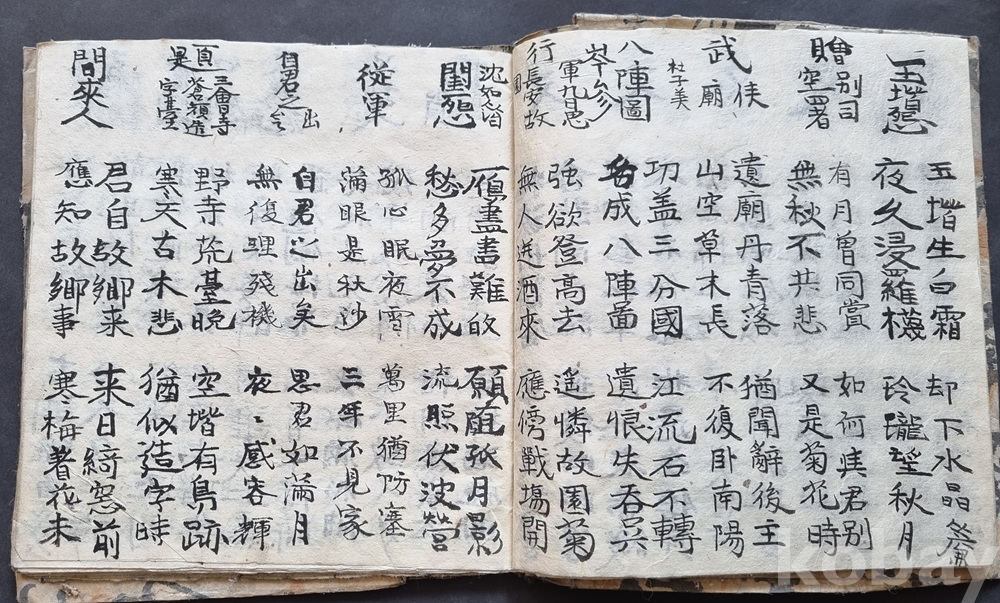 玉堦怨
玉堦生白霜 却下水晶簾
夜久浸羅襪 玲瓏望秋月
贈別司
空署
有月曾同賞 如何惧君別
無秋不共悲 又是菊花時
武侯
廟
杜子美
遺廟丹青落 猶聞辭後主
山空草木長 不復卧南陽
八陣圖
功盖三分國 江流石不轉
名成八陣啚 遺恨失吞吴
岑參
軍九日思
行長安故
園
強欲登高去 遥憐故園菊
無人送酒來 應傍戰場開
沈如
閨怨
鴈盡書難 願随孤月影
愁多夢不成 流照伏波營
従軍
孤心眠夜雪 萬里猶防塞
滿眼是秋沙 三年不見家
自君之出
自君之出矣 思君如滿月
無復理殘機 夜〻感容輝
三會寺
蒼頡造
字臺
野寺荒臺晩 空堦有鳥跡
寒天古木悲 猶似造字時
問來人
君自故鄉来 来日綺窓前
應知故鄉事 寒梅着花未
kobay